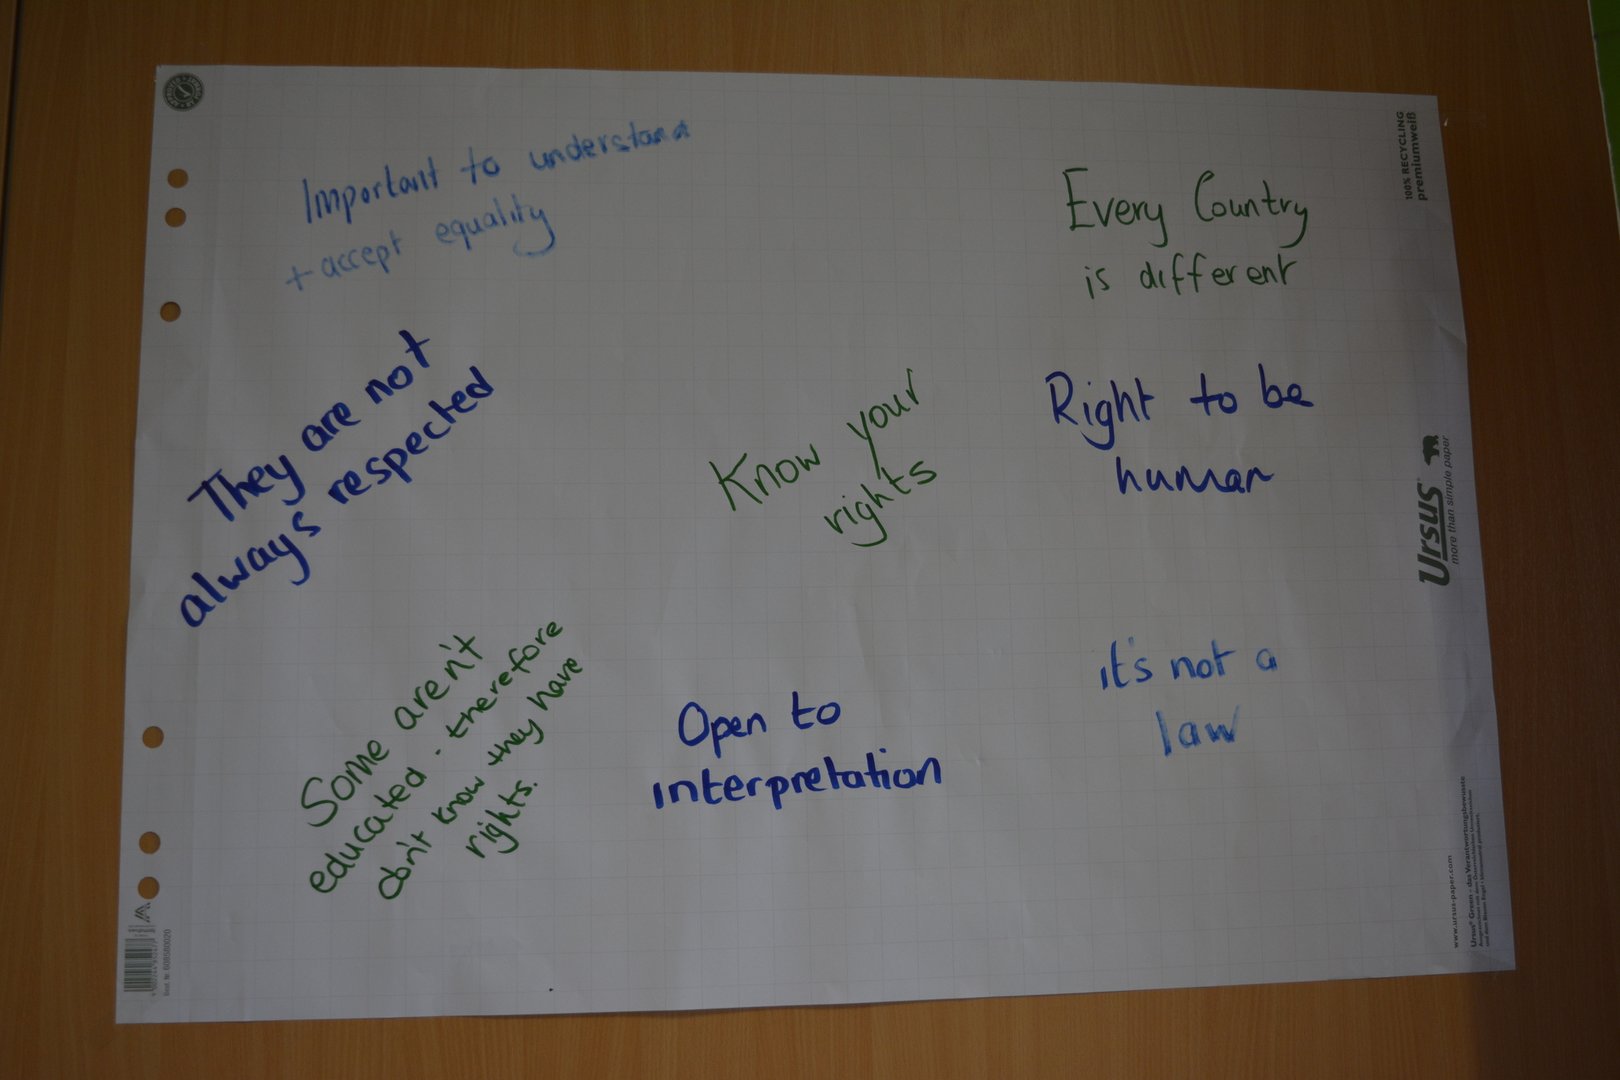 Important to understand
+ accept equality
Every Country
is different
They are not
always respected
Know your
rights
Right to be
human
Some aren't
educated - therefore
don't know they have
rights.
Open to
interpretation
it's not a
law
100% RECYCLING
premiumweiß
Ursus
more than simple paper
www.ursus-paper.com
Ursus® Green - das Verantwortungsbewusste
Best. Nr. 608580020